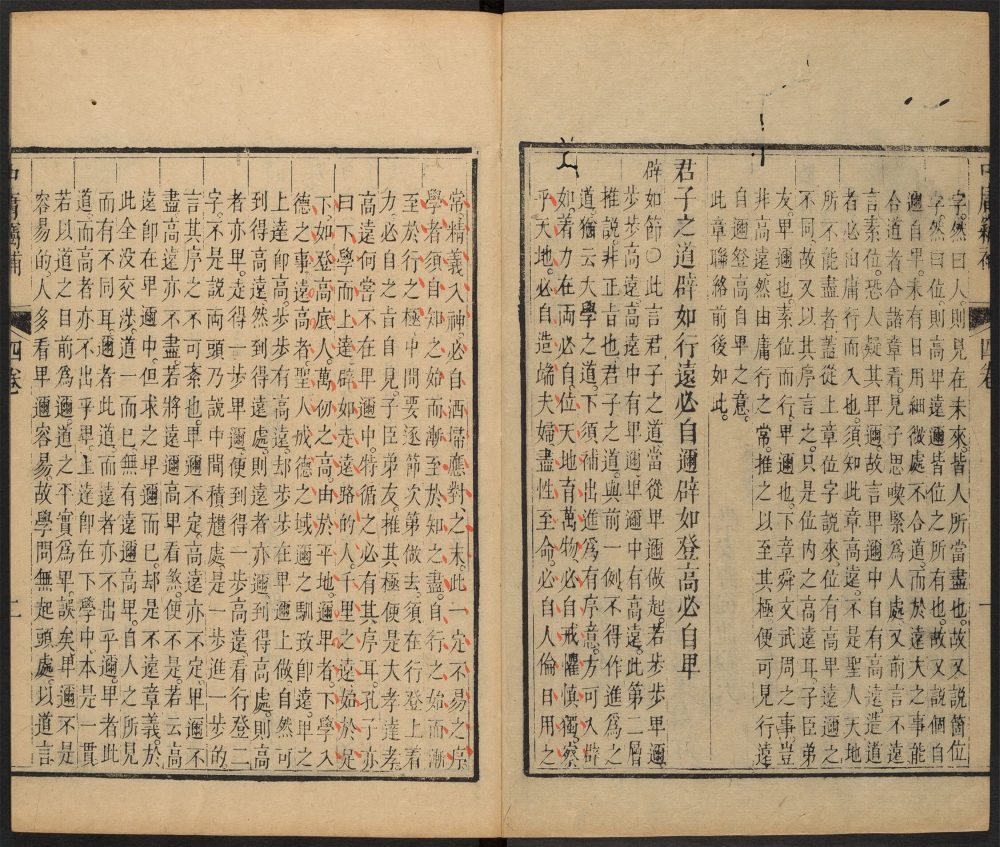 字。然曰人。則見在未來。皆人所當盡也。故又說箇位
字。然曰位。則高卑遠邇皆位之所有也。故又說個自
邇自卑。未有日用細微處不合道。而於遠大之事能
合道者。合諸章看。見子思喫緊爲人處。又前言不遠
言素位。恐人疑其卑邇。故言卑邇中自有高遠。造道
者。必由庸行而入也。須知此章高遠。不是聖人天地
所不能盡者。蓋從上章位字說來。位有高卑遠邇之
不同。故又以其序言之。只是位內之高遠耳。子臣弟
友。卑邇也。素位而行。卑邇也。下章舜文武周之事。豈
非高遠。然由庸行之常。推之以至其極。便可見行遠
自邇登高自卑之意。
此章聯絡前後如此。
君子之道辟如行遠必自邇辟如登高必自卑
辟如節○此言君子之道。當從卑邇做起。若步步卑邇
步步高遠。高遠中有卑邇。卑邇中有高遠。此第二層
推說。非正旨也。君子之道。與前一例。不得作進爲之
道。猶云大學之道。下須補出進爲有序意。方可入辟
如。着力在兩必自。位天地育萬物。必自戒懼慎獨。察
乎天地。必自造端夫婦。盡性至命。必自人倫日用之
四卷 一
常。精義入神。必自洒掃應對之末。此一定不易之序
學者須自知之始。而漸至於知之盡。自行之始。而漸
至於行之極。中間要逐節次第做去。須在行登上着
力。必自之旨自見。子臣弟友。推其極便是大孝達孝
高遠何嘗不在卑邇中。特循之必有其序耳。孔子亦
曰。下學而上達。辟如走遠路的人。千里之遠始於足
下。如登高底人。萬仞之高。由於平地。邇卑者。下學入
德之事。遠高者。聖人成德之域。邇之馴致卽遠。卑之
上達卽高。步步有高遠。却步步在卑邇上做。自然可
到得高遠。然到得遠處。則遠者亦邇。到得高處。則高
者亦卑。走得一步卑邇。便到得一步高遠。看行登二
字。不是說兩頭。乃說中間積纍處。是一步進一步的
言其序之不可紊也。卑不一定。高遠亦不定。卑邇不
盡。高遠亦不盡。若將遠邇高卑看煞。便不是。若云高
遠卽在卑邇中。但求之卑邇而已。却是不遠章義。於
此全沒交涉。道一而已。無有遠邇高卑。自人之所見
而有不同耳。邇者此道。而遠者亦不出乎邇。卑者此
道。而高者亦不出乎卑。上達卽在下學中。本是一貫
若以道之目前爲邇。道之平實爲卑。誤矣。卑邇不是
容易的。人多看卑邇容易。故學問無起頭處。以道言
四卷 二